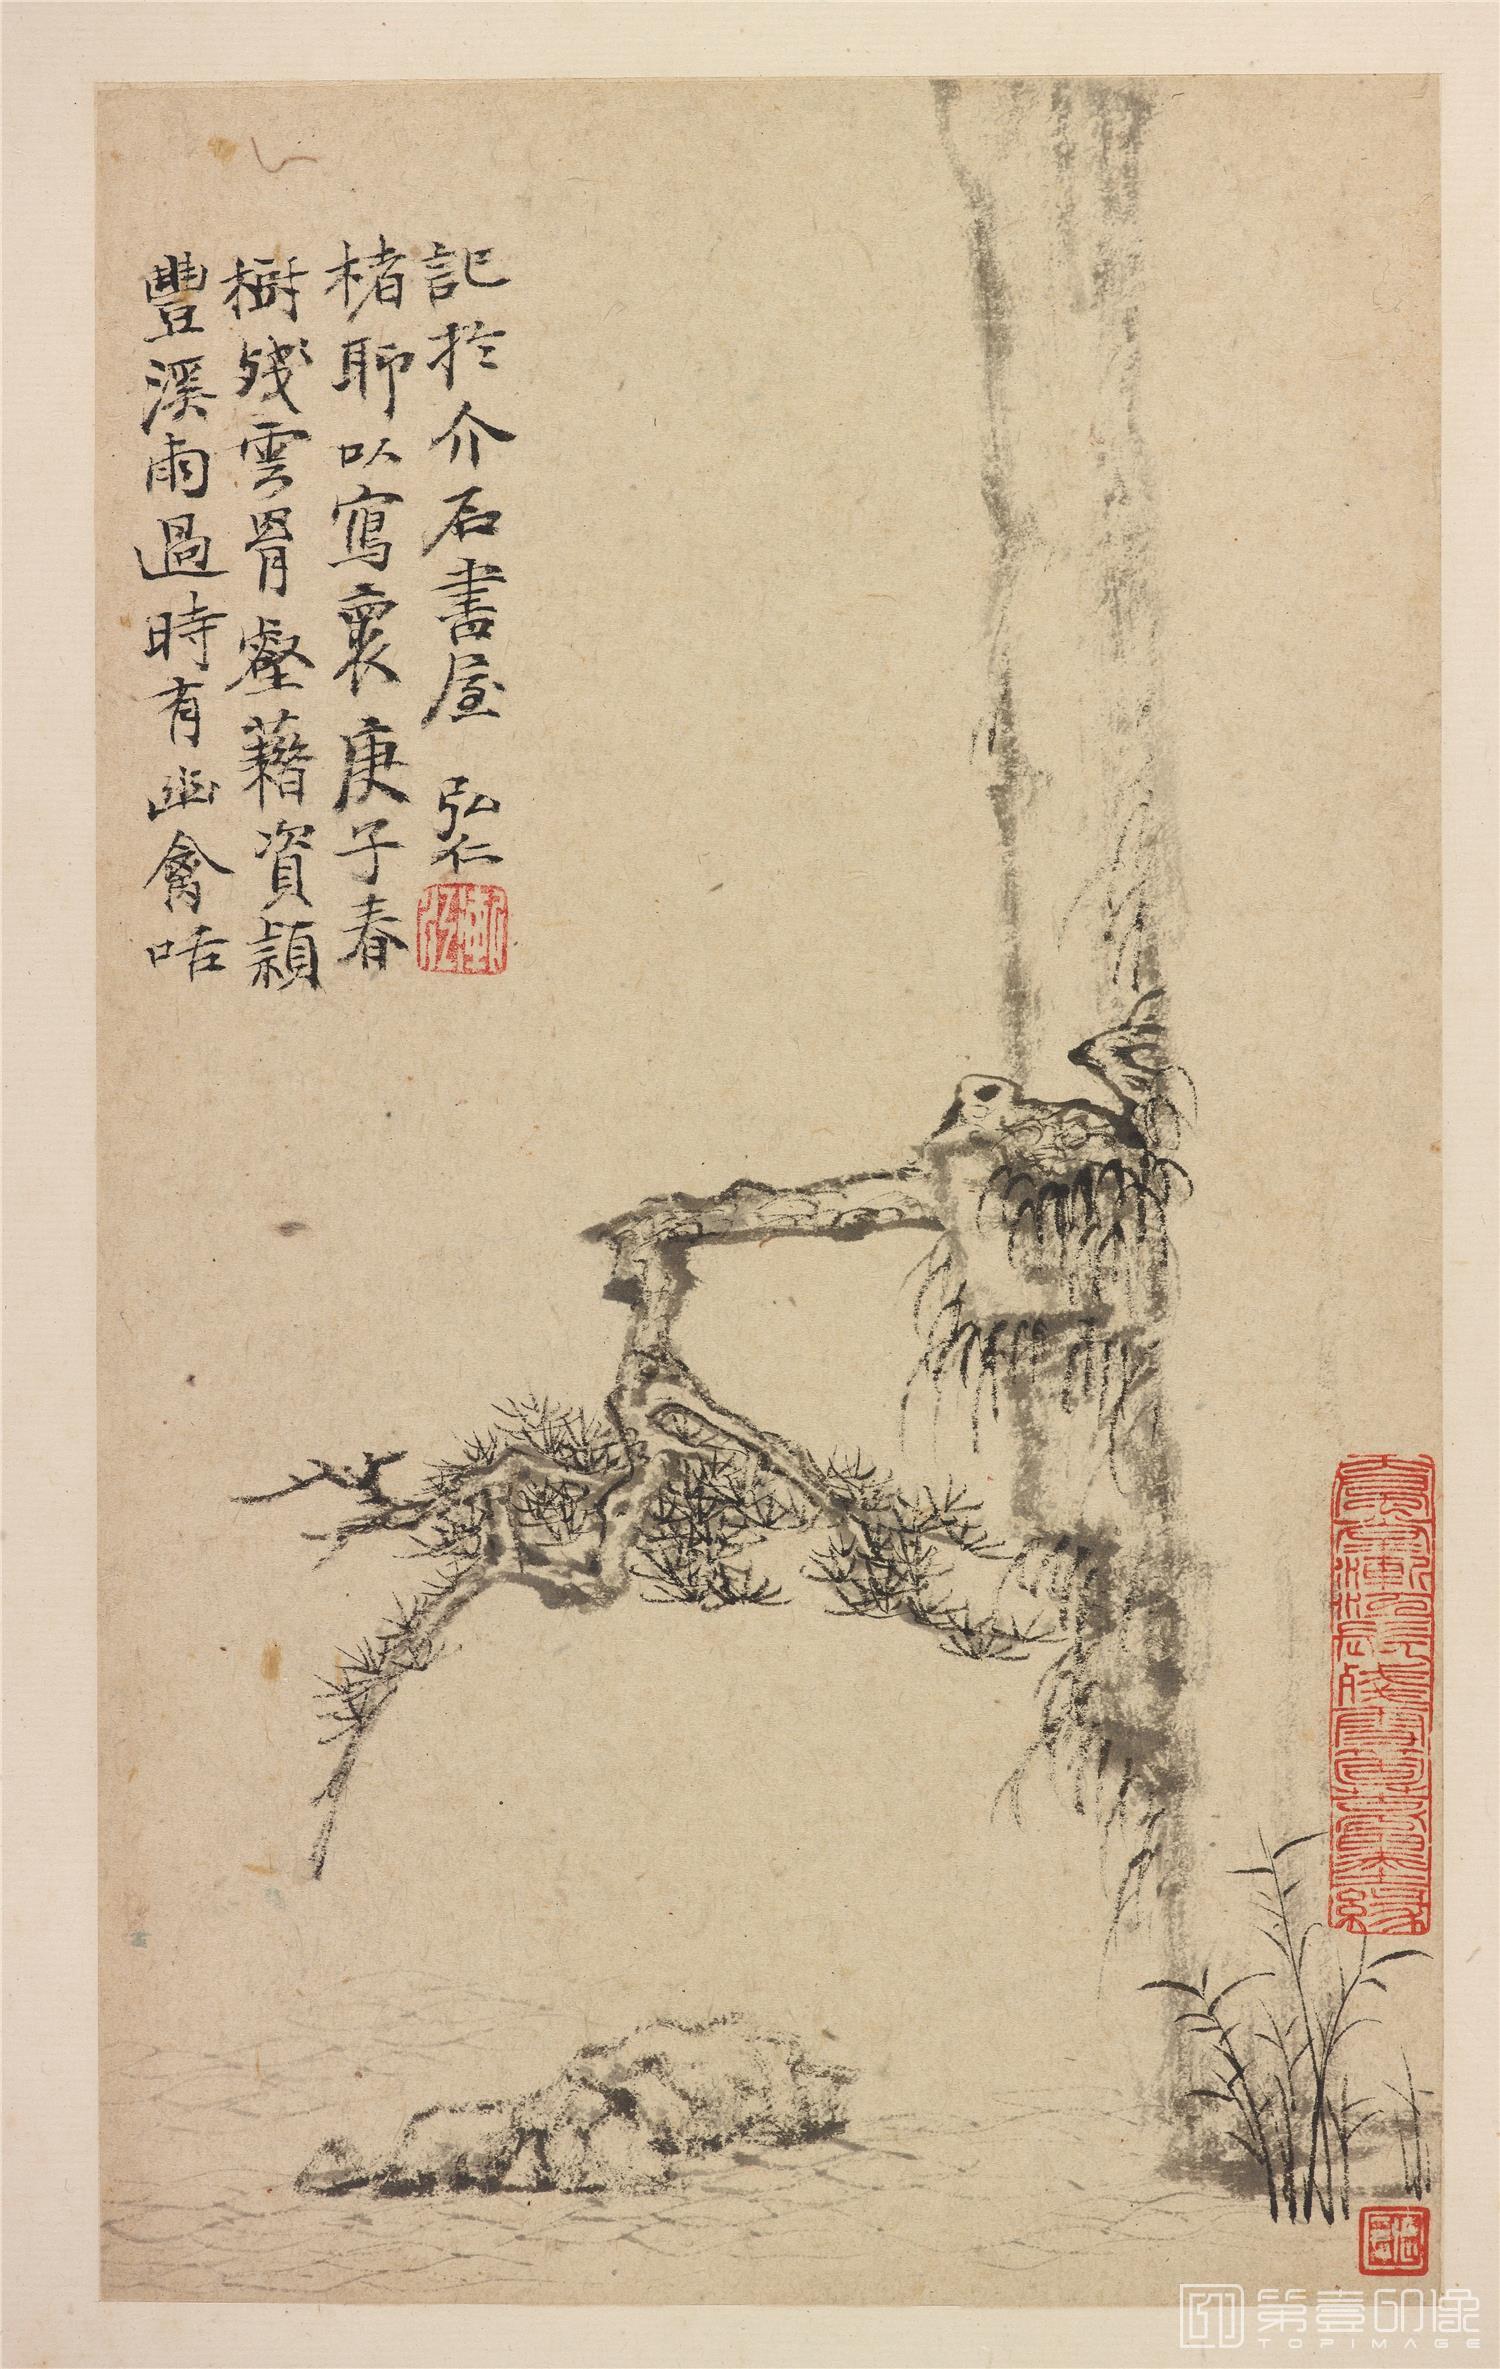 豐溪雨過時有幽禽咶
樹殘雲罥壑藉資穎
楮聊以寫褱庚子春
記於介石書屋 弘仁
第壹印像
TOPIMAGE